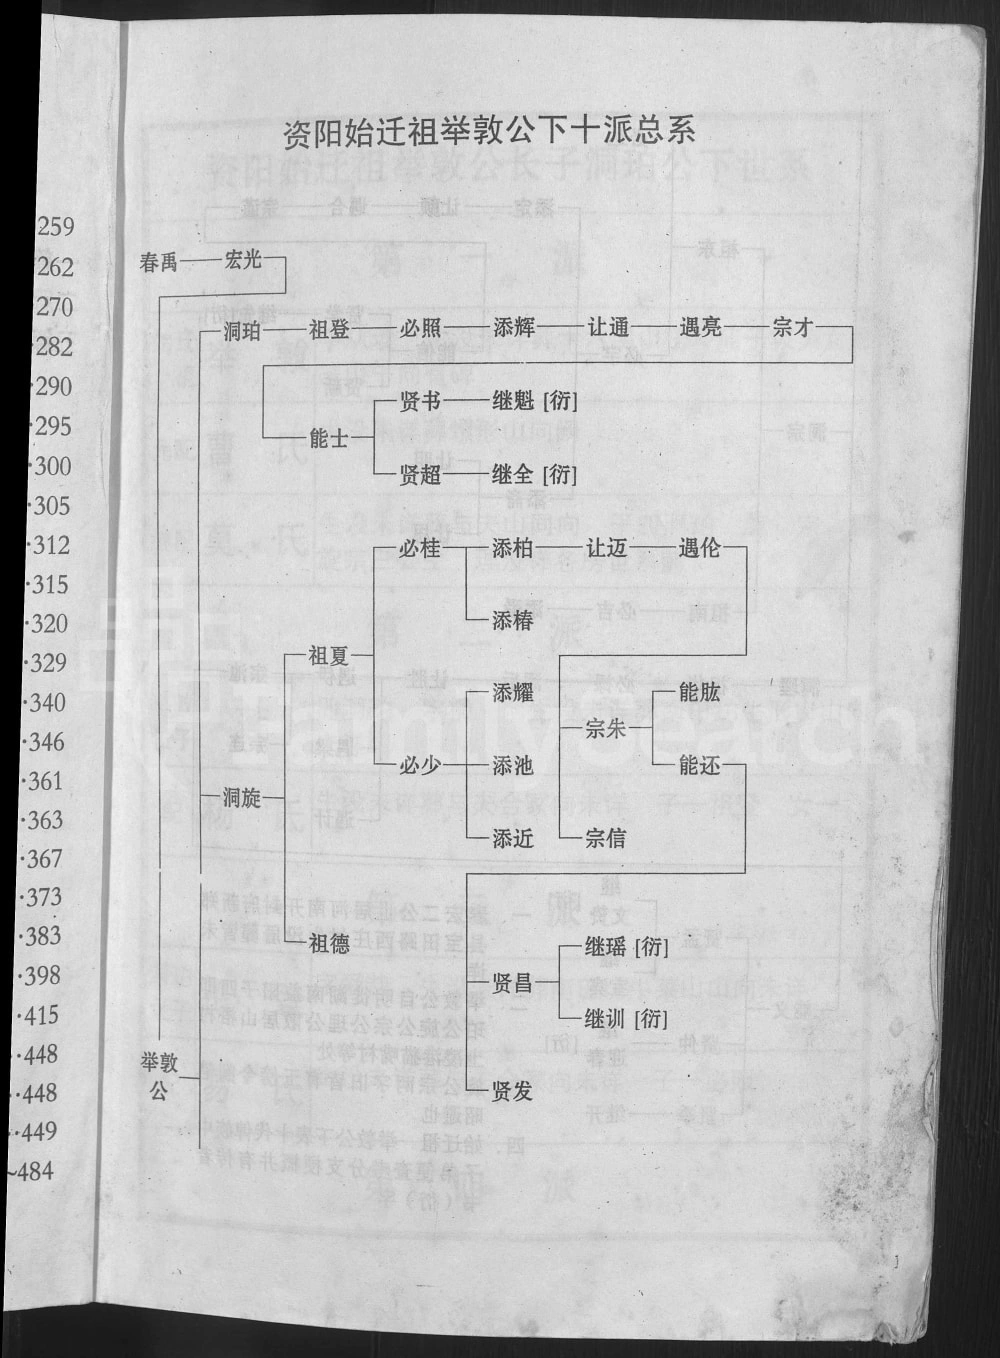 资阳始迁祖举敦公下十派总系
春禹 宏光
洞珀 祖登 必照 添辉 让通 遇亮 宗才
贤书 继魁 [衍]
能士
贤超 继全 [衍]
必桂 添柏 让迈 遇伦
添椿
祖夏
添耀 能肱
宗朱
必少 添池 能还
洞旋
添近 宗信
祖德
继瑶 [衍]
贤昌
继训 [衍]
举敦
公
贤发
259
262
270
·282
·290
·295
·300
·305
·312
·315
·320
·329
·340
·346
·361
·363
·367
·373
·383
·398
·415
··448
··448
··449
~484